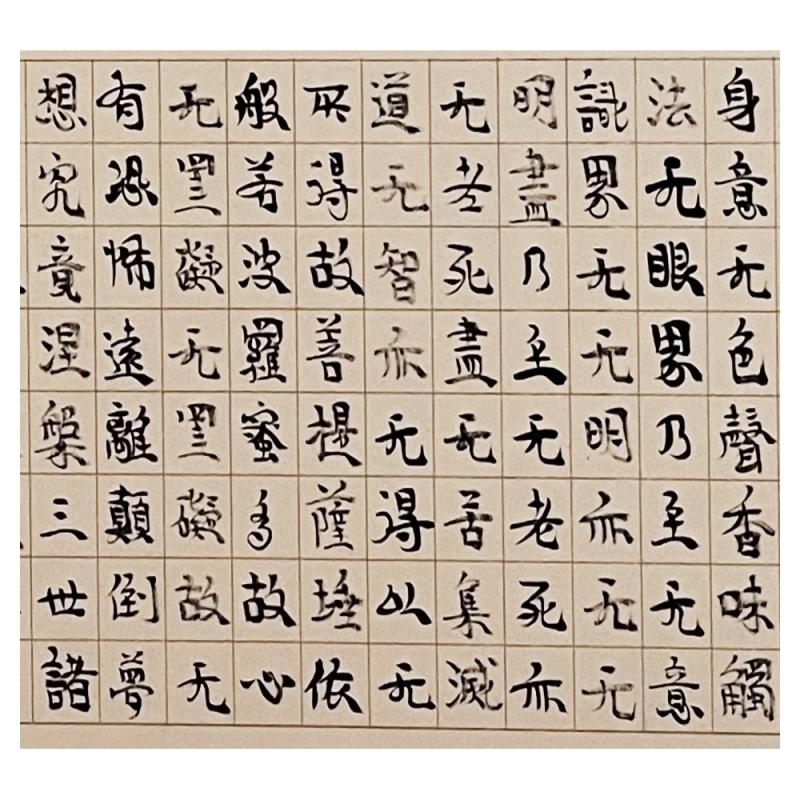 身意无色聲香味觸
法无眼界乃至无意
識界无无明亦无无
明盡乃至无老死亦
无老死盡无苦集滅
道无智亦无得以无
所得故菩提薩埵依
般若波羅蜜多故心
无罣礙无罣礙故无
有恐怖遠離顛倒夢
想究竟涅槃三世諸